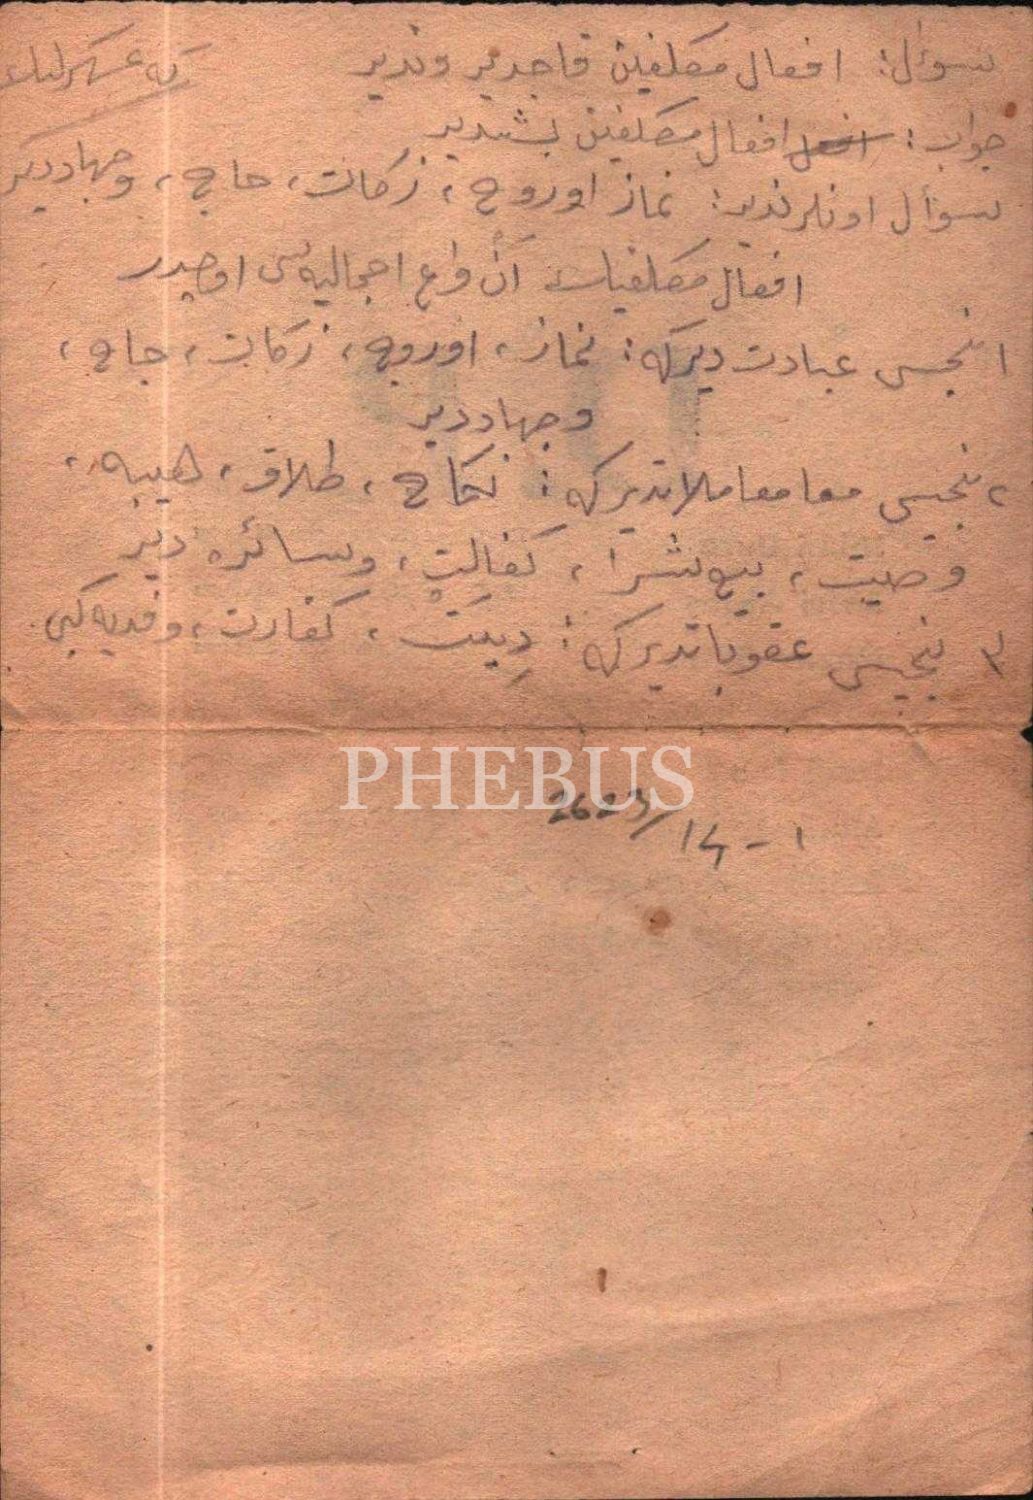 سوءال: افعال مكلفين قاجدير وندير
جواب: افعال افعال مكلفين بشدير
سوءال اونلر ندير: نماز اوروج، زكات، حاج، وجهاددير
افعال مكلفينك انواع اجماليه سی اوچدر
١ نجسی عبادت ديركه: نماز، اوروج، زكات، حاج،
وجهاددير
٢ نجيسی معا معاملاتديركه: نكاح، طلاق، هيبه،
وصيت، بيع شرا، كفالت، وسائره دير
٣ نجيسی عقوباتديركه: دِيَت، كفارت، وفديه گبی.
PHEBUS
2623/14-1